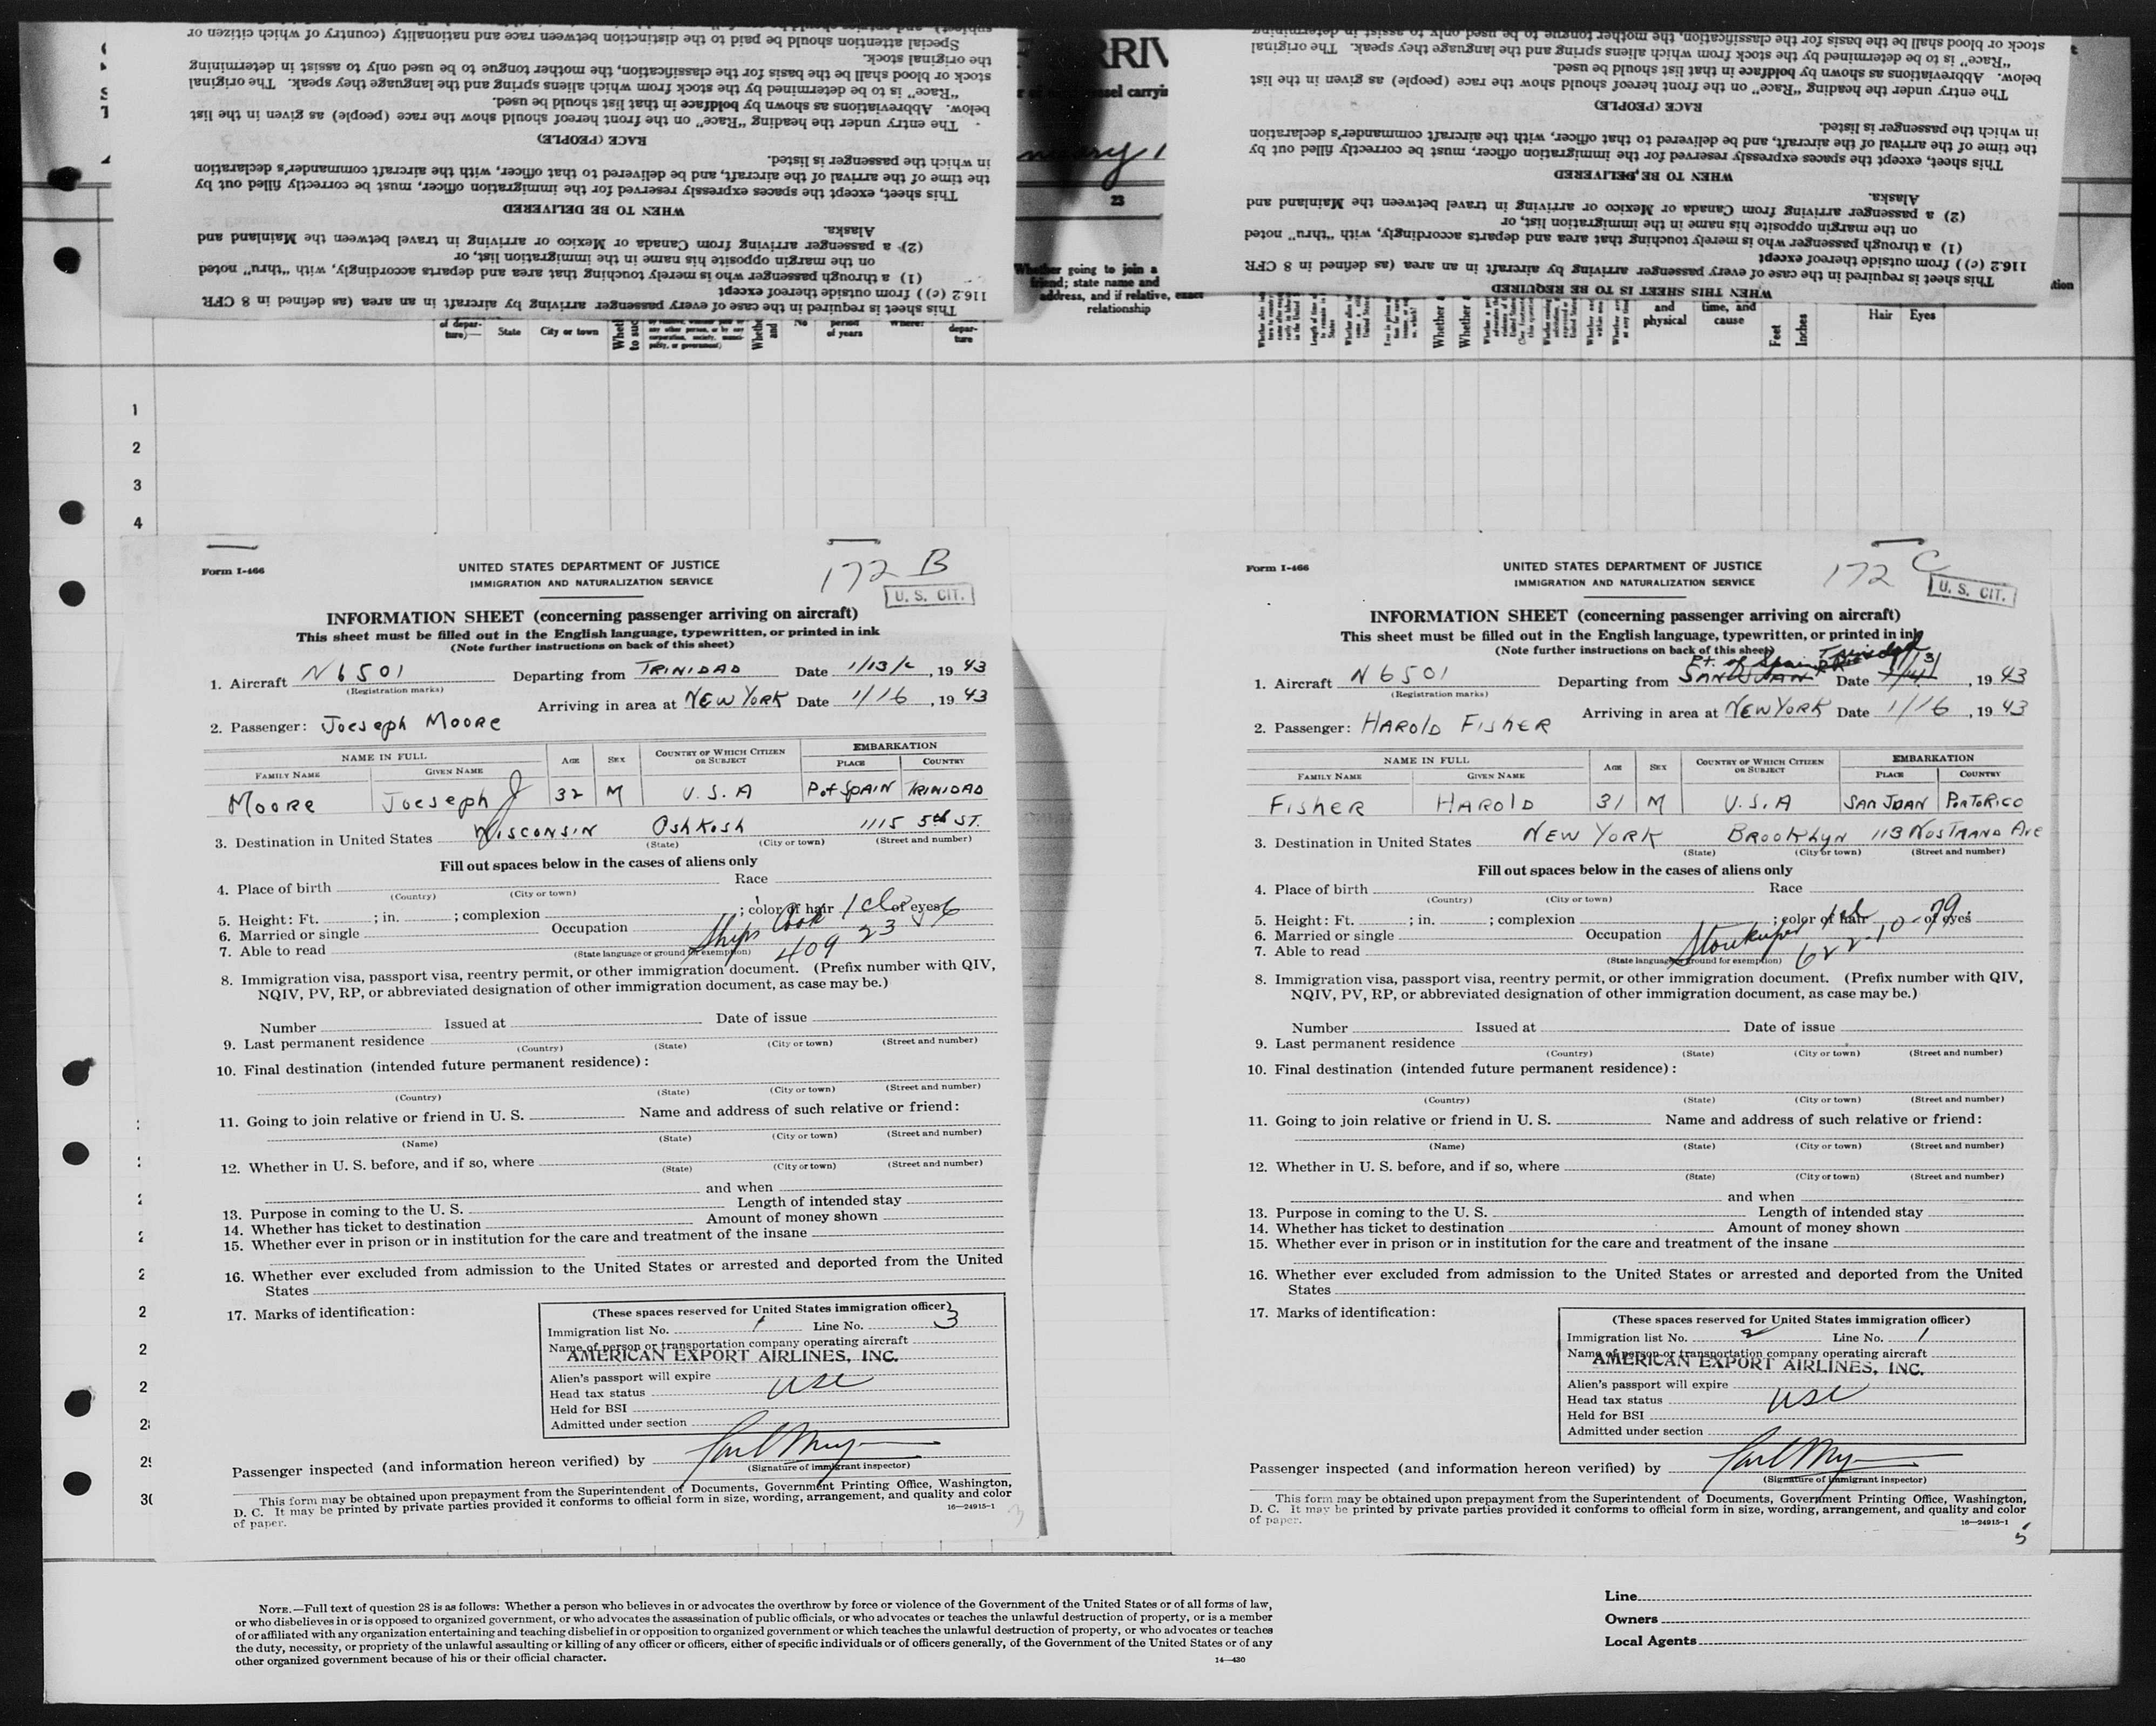 subject) and entries should be paid to the distinction between race and nationality (country of which citizen or
Special attention should be paid to the distinction between race and nationality (country of which citizen or
the original stock.
stock or blood shall be the basis for the classification, the mother tongue to be used only to assist in determining
"Race" is to be determined by the stock from which aliens spring and the language they speak. The original
below. Abbreviations as shown by boldface in that list should be used.
The entry under the heading "Race" on the front hereof should show the race (people) as given in the list
RACE (PEOPLE)
in which the passenger is listed.
the time of the arrival of the aircraft, and be delivered to that officer, with the aircraft commander's declaration
This sheet, except the spaces expressly reserved for the immigration officer, must be correctly filled out by
WHEN TO BE DELIVERED
Alaska.
(2) a passenger arriving from Canada or Mexico or arriving in travel between the Mainland and
on the margin opposite his name in the immigration list, or
(1) a through passenger who is merely touching that area and departs accordingly, with "thru" noted
116.2 (c)) from outside thereof except
This sheet is required in the case of every passenger arriving by aircraft in an area (as defined in 8 CFR
RRIV
sel carryin
nuary 1
23
Whether going to join a
friend; state name and
address, and if relative, exact
relationship
stock or blood shall be the basis for the classification, the mother tongue to be used only to assist in determining
"Race" is to be determined by the stock from which aliens spring and the language they speak. The original
below. Abbreviations as shown by boldface in that list should be used.
The entry under the heading "Race" on the front hereof should show the race (people) as given in the list
RACE (PEOPLE)
in which the passenger is listed.
the time of the arrival of the aircraft, and be delivered to that officer, with the aircraft commander's declaration
This sheet, except the spaces expressly reserved for the immigration officer, must be correctly filled out by
WHEN TO BE DELIVERED
Alaska.
(2) a passenger arriving from Canada or Mexico or arriving in travel between the Mainland and
on the margin opposite his name in the immigration list, or
(1) a through passenger who is merely touching that area and departs accordingly, with "thru" noted
116.2 (c)) from outside thereof except
This sheet is required in the case of every passenger arriving by aircraft in an area (as defined in 8 CFR
WHEN THIS SHEET IS TO BE REQUIRED
of depar-
ture)—
State
City or town
No
period
of years
Where?
depar-
ture
and
physical
time, and
cause
Feet
Inches
Hair
Eyes
1
2
3
4
Form I-466
UNITED STATES DEPARTMENT OF JUSTICE
IMMIGRATION AND NATURALIZATION SERVICE
172 B
U. S. CIT.
INFORMATION SHEET (concerning passenger arriving on aircraft)
This sheet must be filled out in the English language, typewritten, or printed in ink
(Note further instructions on back of this sheet)
1. Aircraft N6501 Departing from TRINIDAD Date 1/13/2, 19 43
(Registration marks)
Arriving in area at NEW YORK Date 1/16, 19 43
2. Passenger: Joeseph Moore
NAME IN FULL
FAMILY NAME GIVEN NAME AGE SEX COUNTRY OF WHICH CITIZEN OR SUBJECT EMBARKATION PLACE COUNTRY
Moore Joeseph J 32 M U.S.A P of SPAIN TRINIDAD
3. Destination in United States WISCONSIN OshKosh 1115 5th ST.
(State) (City or town) (Street and number)
Fill out spaces below in the cases of aliens only
4. Place of birth Race
(Country) (City or town)
5. Height: Ft. ; in. ; complexion ; color of hair of eyes
6. Married or single Occupation Ships Cook
7. Able to read 409 23
(State language or ground for exemption)
8. Immigration visa, passport visa, reentry permit, or other immigration document. (Prefix number with QIV,
NQIV, PV, RP, or abbreviated designation of other immigration document, as case may be.)
Number Issued at Date of issue
9. Last permanent residence
(Country) (State) (City or town) (Street and number)
10. Final destination (intended future permanent residence):
(Country) (State) (City or town) (Street and number)
11. Going to join relative or friend in U. S. Name and address of such relative or friend:
(Name) (State) (City or town) (Street and number)
12. Whether in U. S. before, and if so, where
(State) (City or town) (Street and number)
and when
13. Purpose in coming to the U. S. Length of intended stay
14. Whether has ticket to destination Amount of money shown
15. Whether ever in prison or in institution for the care and treatment of the insane
16. Whether ever excluded from admission to the United States or arrested and deported from the United
States
17. Marks of identification:
(These spaces reserved for United States immigration officer)
Immigration list No. 1 Line No. 3
Name of person or transportation company operating aircraft
AMERICAN EXPORT AIRLINES, INC.
Alien's passport will expire
Head tax status USC
Held for BSI
Admitted under section
Passenger inspected (and information hereon verified) by
(Signature of immigrant inspector)
This form may be obtained upon prepayment from the Superintendent of Documents, Government Printing Office, Washington,
D. C. It may be printed by private parties provided it conforms to official form in size, wording, arrangement, and quality and color
of paper.
16—24915-1
3
Form I-466
UNITED STATES DEPARTMENT OF JUSTICE
IMMIGRATION AND NATURALIZATION SERVICE
172 C
U. S. CIT.
INFORMATION SHEET (concerning passenger arriving on aircraft)
This sheet must be filled out in the English language, typewritten, or printed in ink
(Note further instructions on back of this sheet)
Pt. of Spain Trinidad
1. Aircraft N6501 Departing from SAN JUAN Date 1/13, 19 43
(Registration marks)
Arriving in area at NEW YORK Date 1/16, 19 43
2. Passenger: HAROLD FISHER
NAME IN FULL
FAMILY NAME GIVEN NAME AGE SEX COUNTRY OF WHICH CITIZEN OR SUBJECT EMBARKATION PLACE COUNTRY
FISHER HAROLD 31 M U.S.A SAN JUAN PORTORICO
3. Destination in United States NEW YORK BROOKLYN 113 NOSTRAND Ave
(State) (City or town) (Street and number)
Fill out spaces below in the cases of aliens only
4. Place of birth Race
(Country) (City or town)
5. Height: Ft. ; in. ; complexion ; color of hair of eyes
6. Married or single Occupation Storekeeper
7. Able to read 622-10-79
(State language or ground for exemption)
8. Immigration visa, passport visa, reentry permit, or other immigration document. (Prefix number with QIV,
NQIV, PV, RP, or abbreviated designation of other immigration document, as case may be.)
Number Issued at Date of issue
9. Last permanent residence
(Country) (State) (City or town) (Street and number)
10. Final destination (intended future permanent residence):
(Country) (State) (City or town) (Street and number)
11. Going to join relative or friend in U. S. Name and address of such relative or friend:
(Name) (State) (City or town) (Street and number)
12. Whether in U. S. before, and if so, where
(State) (City or town) (Street and number)
and when
13. Purpose in coming to the U. S. Length of intended stay
14. Whether has ticket to destination Amount of money shown
15. Whether ever in prison or in institution for the care and treatment of the insane
16. Whether ever excluded from admission to the United States or arrested and deported from the United
States
17. Marks of identification:
(These spaces reserved for United States immigration officer)
Immigration list No. 2 Line No. 1
Name of person or transportation company operating aircraft
AMERICAN EXPORT AIRLINES, INC.
Alien's passport will expire
Head tax status USC
Held for BSI
Admitted under section
Passenger inspected (and information hereon verified) by
(Signature of immigrant inspector)
This form may be obtained upon prepayment from the Superintendent of Documents, Government Printing Office, Washington,
D. C. It may be printed by private parties provided it conforms to official form in size, wording, arrangement, and quality and color
of paper.
16—24915-1
5
30
NOTE.—Full text of question 28 is as follows: Whether a person who believes in or advocates the overthrow by force or violence of the Government of the United States or of all forms of law,
or who disbelieves in or is opposed to organized government, or who advocates the assassination of public officials, or who advocates or teaches the unlawful destruction of property, or is a member
of or affiliated with any organization entertaining and teaching disbelief in or opposition to organized government or which teaches the unlawful destruction of property, or who advocates or teaches
the duty, necessity, or propriety of the unlawful assaulting or killing of any officer or officers, either of specific individuals or of officers generally, of the Government of the United States or of any
other organized government because of his or their official character.
14—430
Line
Owners
Local Agents